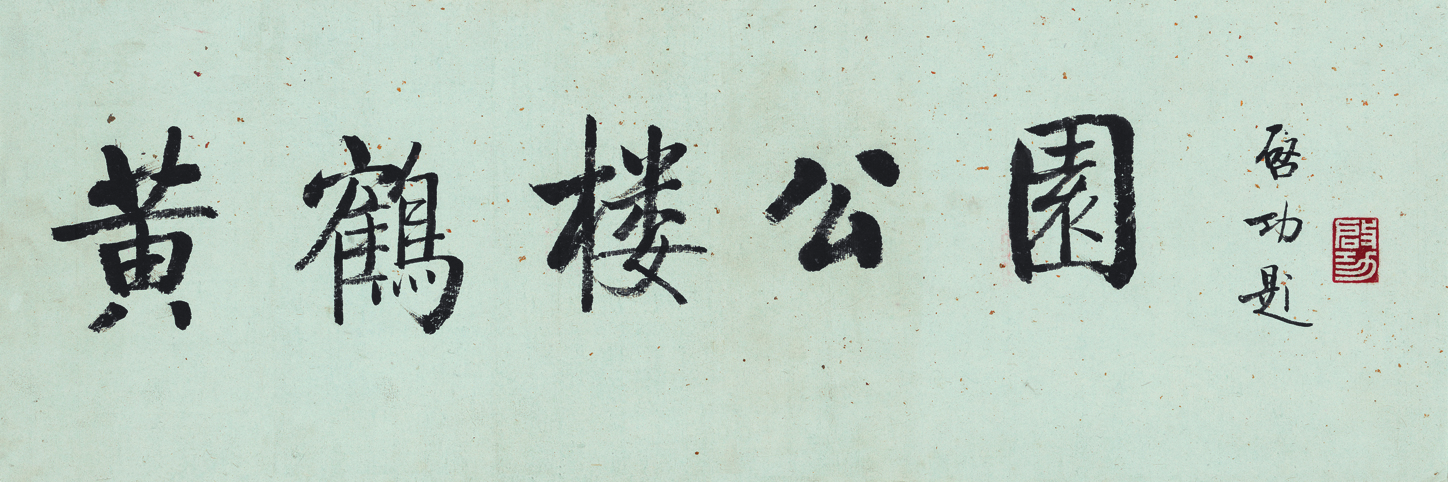 黄鹤楼公園
啓功题
啓功